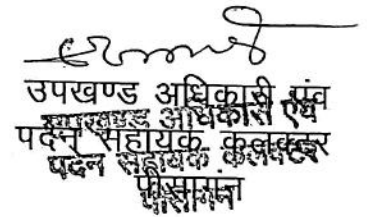 उपखण्ड अधिकारी एंव
उपखण्ड अधिकारी एवं
पदेन सहायक कलक्टर
पदेन सहायक कलक्टर
पीसांगन
पीसांगन